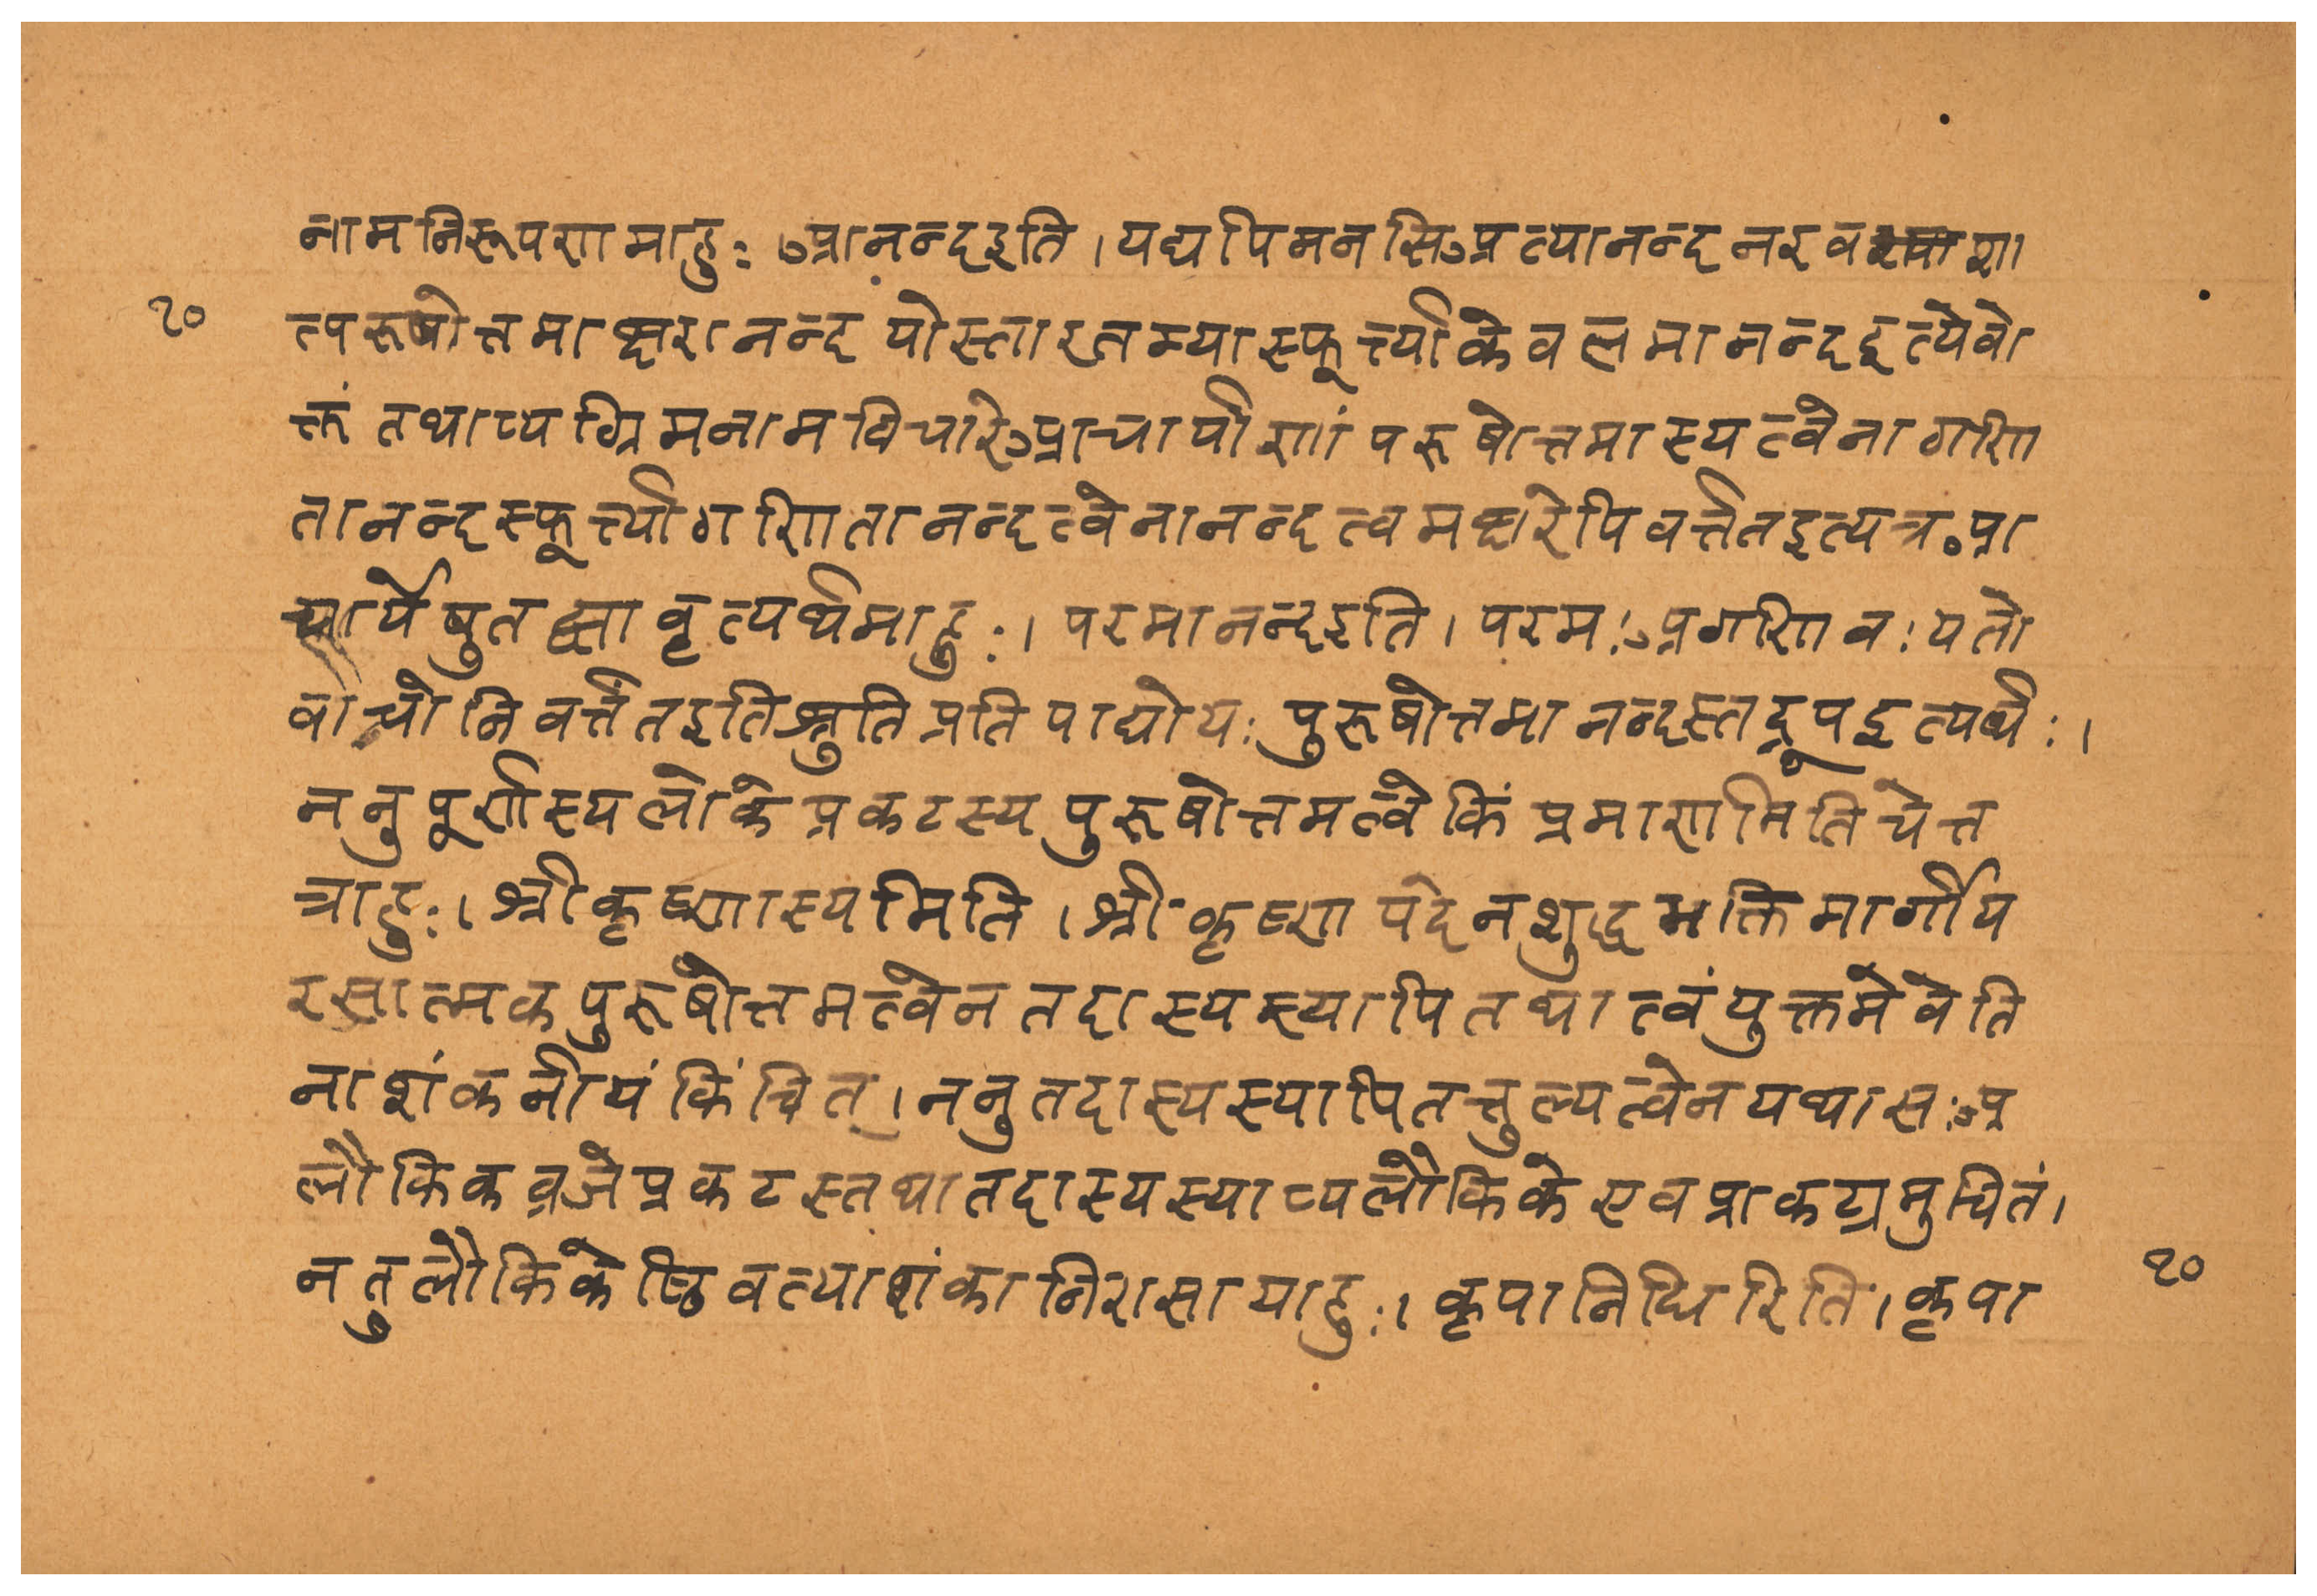 नामनिरूपणमाहुः । आनन्दइति । यद्यपिमनसिअत्यानन्दनइव
२० त्परूषोत्तमाक्षरानन्दयोस्तारतम्यास्फूर्त्त्याकेवलमानन्दइत्येवो
क्तं तथाप्यग्रिमनामविचारेआचार्याणां परूषोत्तमास्यत्वेनागणि
तानन्दस्फूर्त्त्यागणितानन्दत्वेनानन्दत्वमक्षरेपिवर्त्ततइत्यत्र आ
चार्येषुतद्व्यावृत्यर्थमाहुः । परमानन्दइति । परमः अगणिवः यतो
वाचोनिवर्त्तंतइतिश्रुतिप्रतिपाद्योयः पुरूषोत्तमानन्दस्तद्रूपइत्यर्थः ।
ननुपूर्णास्यलोकेप्रकटस्यपुरूषोत्तमत्वेकिं प्रमाणमितिचेत्त
त्राहुः । श्रीकृष्णास्यमिति । श्रीकृष्णपदेनशुद्धभक्तिमार्गीय
रसात्मकपुरूषोत्तमत्वेनतदास्यस्यापितथात्वंयुक्तमेवेति
नाशंकनीयं किंचित् । ननुतदास्यस्यापितत्तुल्यत्वेनयथासः अ
लौकिकव्रजेप्रकटस्तथातदास्यस्याप्यलौकिकेएवप्राकट्यमुचितं ।
नतुलौकिकेष्विवत्याशंकानिरासायाहुः । कृपानिधिरिति । कृपा २०